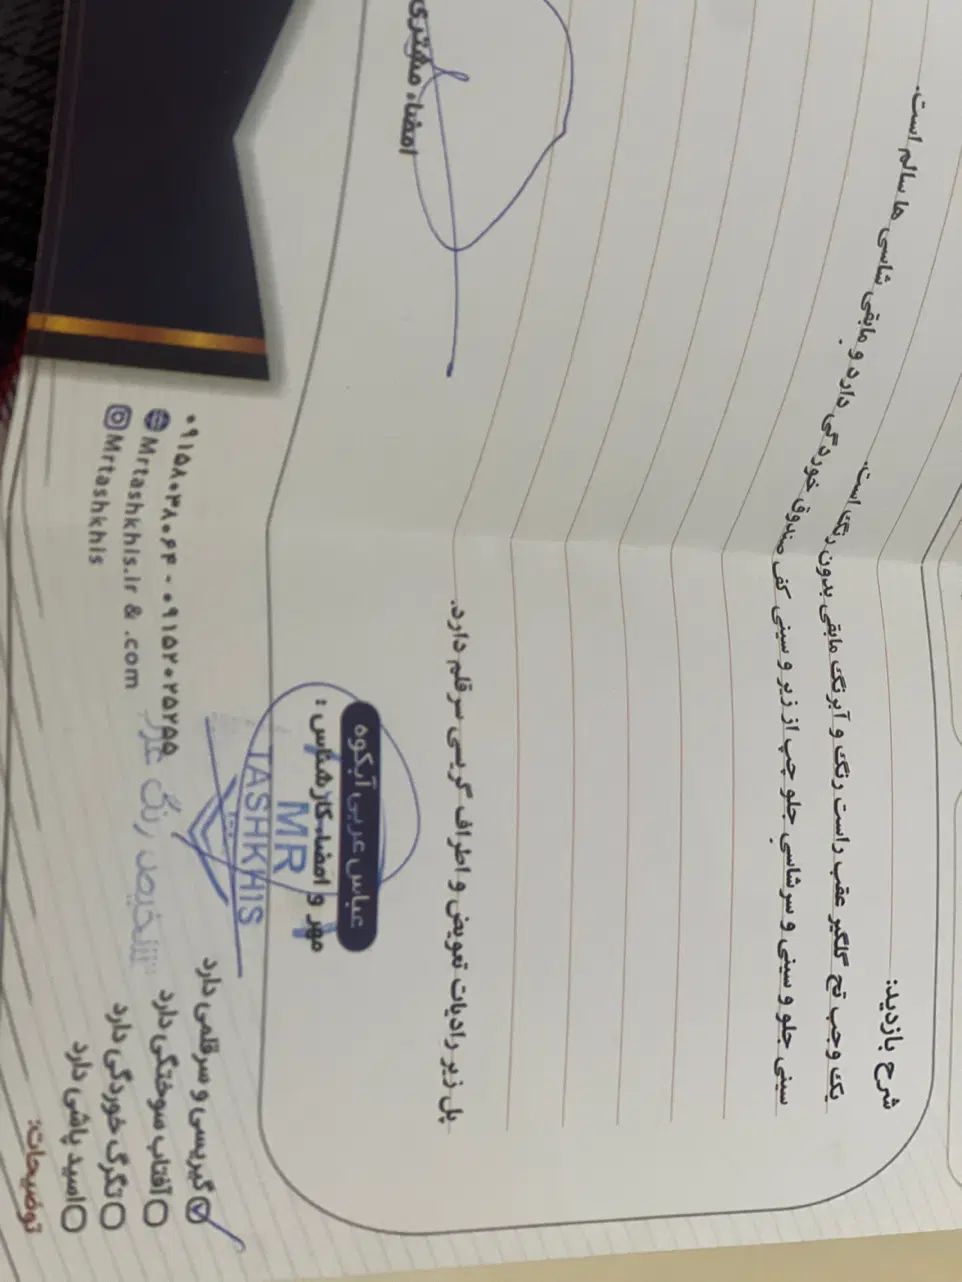 شرح بازدید:
یک وجب تج گلگیر عقب راست رنگ و آبرنگ مابقی بدون رنگ است.
سینی جلو و سینی و سرشاسی جلو چپ از زیر و سینی کف صندوق خوردگی دارد و مابقی شاسی ها سالم است.
پل زیر رادیات تعویض و اطراف گریسی سرقلم دارد.
امضاء مشتری
عباس عربی آبکوه
مهر و امضاء کارشناس :
MR
TASHKHIS
تشخیص رنگ
گیریسی و سرقلمی دارد
آفتاب سوختگی دارد
تگرگ خوردگی دارد
اسید پاشی دارد
توضیحات:
۰۹۱۵۸۰۳۸۰۶۴ - ۰۹۱۵۲۰۲۵۲۵۵
Mrtashkhis.ir & .com
Mrtashkhis